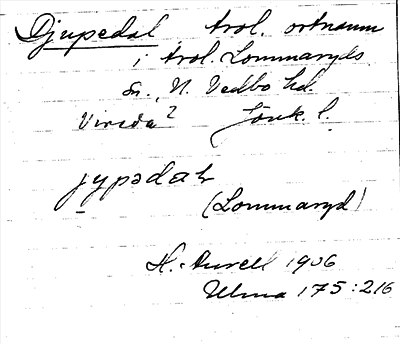 Djupedal trol. ortnamn
i trol. Lommaryds
sn., N. Vedbo hd.
Vireda? Jönk. l.
jypədaḷ
(Lommaryd)
H. Aurell 1906
Ulma 175:216